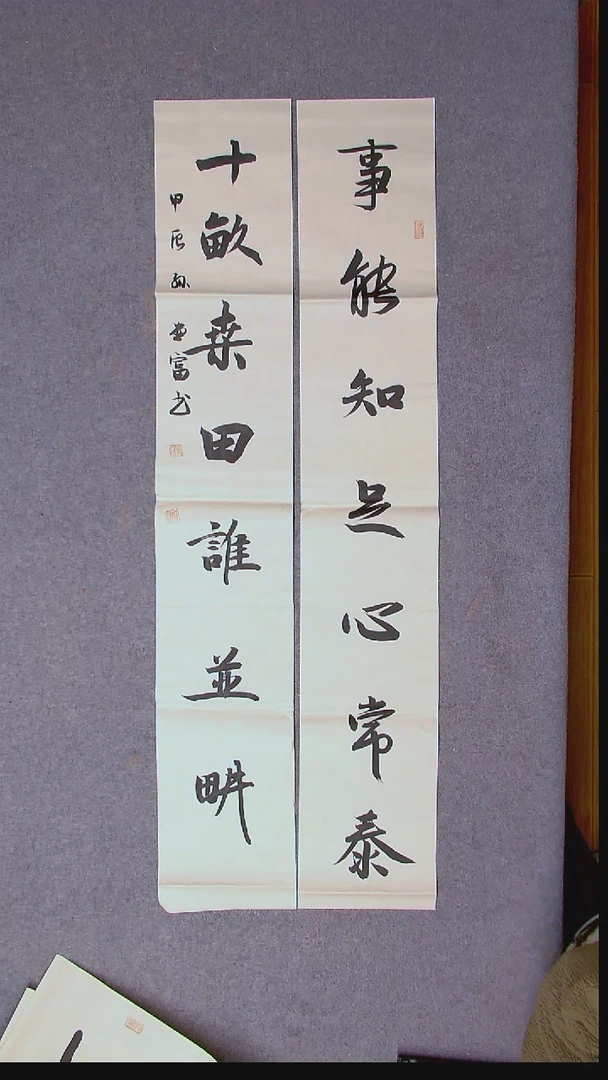 事能知足心常泰
十畝桒田誰並畊
甲辰孙富书